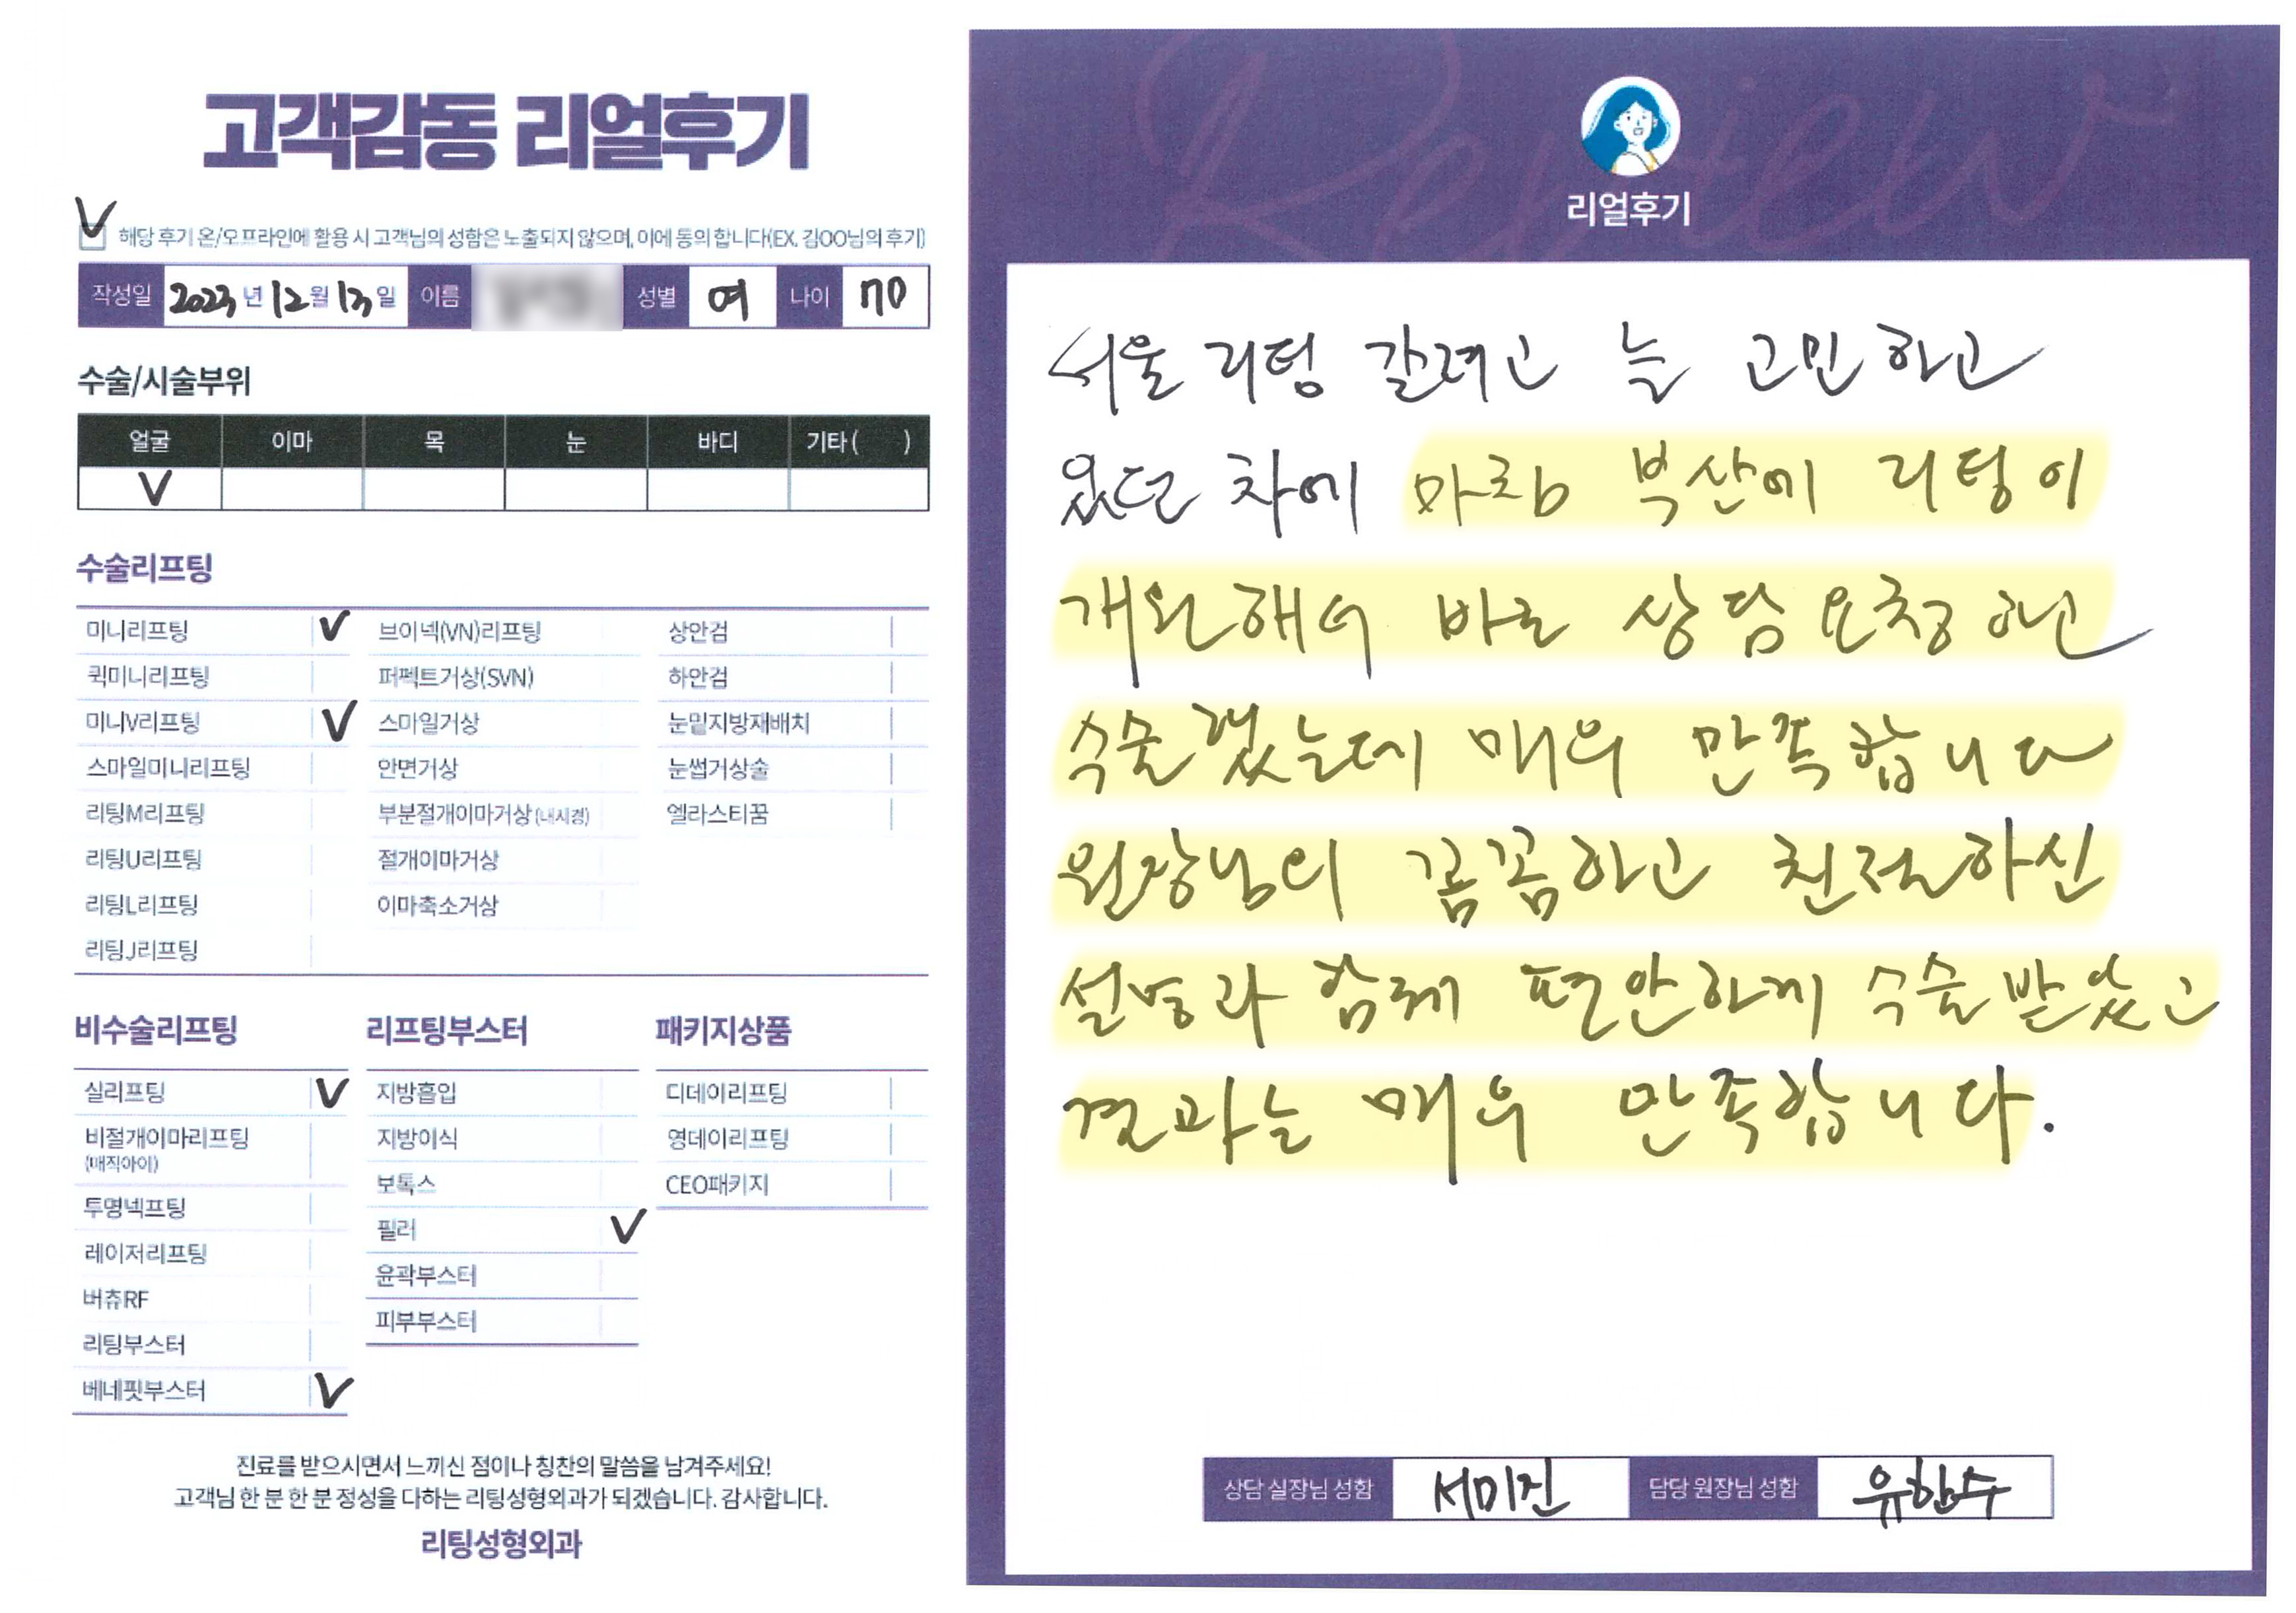 고객감동 리얼후기
해당 후기 온/오프라인에 활용 시 고객님의 성함은 노출되지 않으며, 이에 동의 합니다(EX. 김OO님의 후기)
작성일 2023년 12월 13일 이름 성별 여 나이 70
수술/시술부위
얼굴 이마 목 눈 바디 기타 ( )
V
수술리프팅
미니리프팅 V 브이넥(VN)리프팅 상안검
퀵미니리프팅 퍼펙트거상(SVN) 하안검
미니V리프팅 V 스마일거상 눈밑지방재배치
스마일미니리프팅 안면거상 눈썹거상술
리팅M리프팅 부분절개이마거상 (내시경) 엘라스티꿈
리팅U리프팅 절개이마거상
리팅L리프팅 이마축소거상
리팅J리프팅
비수술리프팅 리프팅부스터 패키지상품
실리프팅 V 지방흡입 디데이리프팅
비절개이마리프팅 지방이식 영데이리프팅
(매직아이)
보톡스 CEO패키지
투명넥프팅 필러 V
레이저리프팅 윤곽부스터
버츄RF 피부부스터
리팅부스터
베네핏부스터 V
진료를 받으시면서 느끼신 점이나 칭찬의 말씀을 남겨주세요!
고객님 한 분 한 분 정성을 다하는 리팅성형외과가 되겠습니다. 감사합니다.
리팅성형외과
Review
리얼후기
서울 리팅 갈려고 늘 고민 하고
있던 차에 마침 부산에 리팅이
개원해서 바로 상담 요청 하고
수술했는데 매우 만족합니다
원장님의 꼼꼼하고 친절하신
설명과 함께 편안하게 수술 받았고
결과는 매우 만족합니다.
상담 실장님 성함 서미진 담당 원장님 성함 유한수